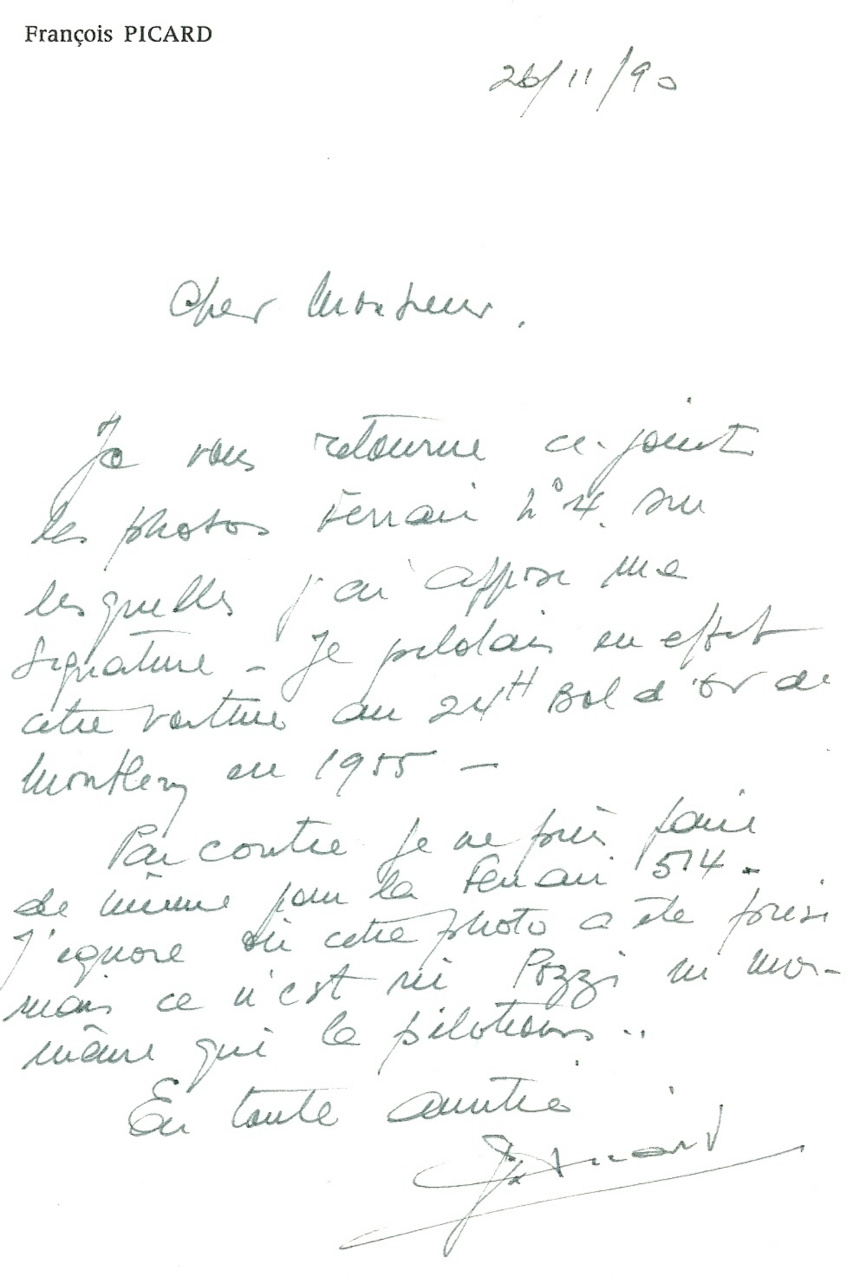 François PICARD
26/11/90
Cher Monsieur,
Je vous retourne ci-joint
les photos Ferrari N°4 sur
lesquelles j'ai apposé ma
signature - Je pilotais en effet
cette voiture au 24H Bol d'Or de
Montlery en 1955 -
Par contre je ne puis faire
de même pour la Ferrari 514 -
J'ignore où cette photo a été prise
mais ce n'est ni Pozzi ni moi-
même qui la pilotions ..
En toute amitié
Picard